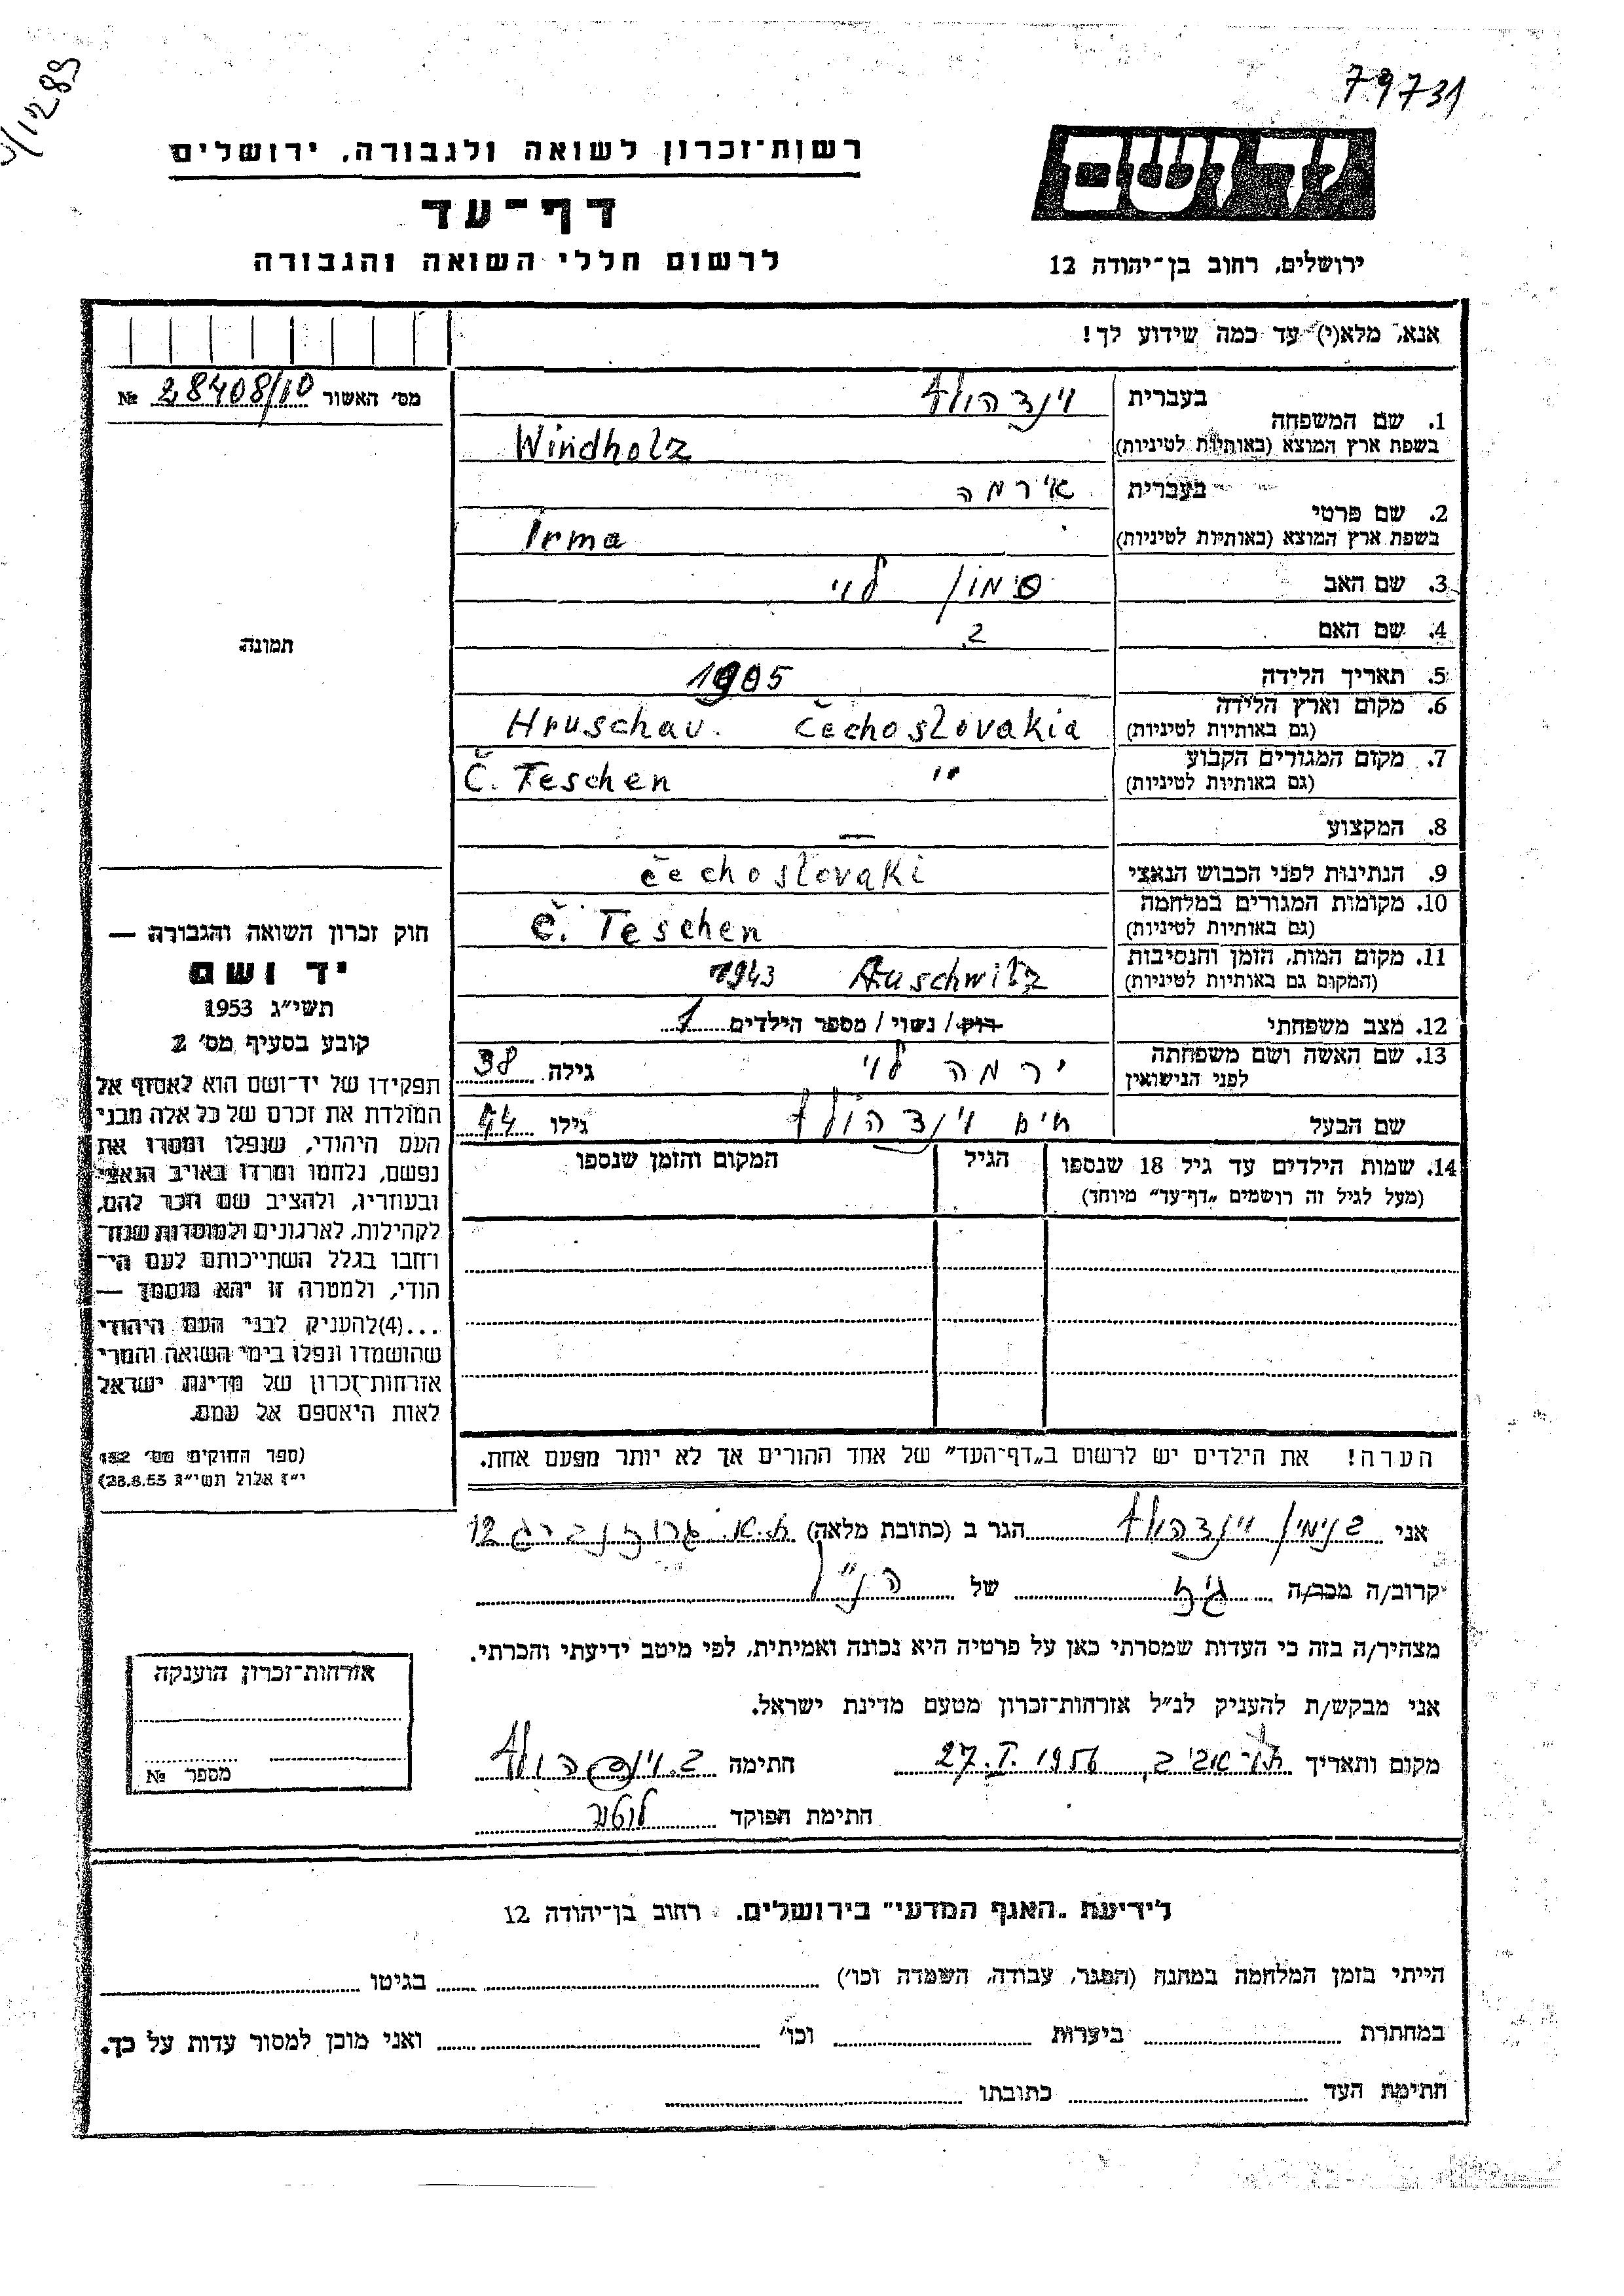 79731
1289
יד ושם
רשות־זכרון לשואה ולגבורה, ירושלים
דף־עד
לרשום חללי השואה והגבורה
ירושלים, רחוב בן־יהודה 12
אנא, מלא(י) עד כמה שידוע לך!
מס׳ האשור 28408/10 №
1. שם המשפחה
בעברית וינדהולץ
בשפת ארץ המוצא (באותיות לטיניות) Windholz
2. שם פרטי
בעברית אירמה
בשפת ארץ המוצא (באותיות לטיניות) Irma
3. שם האב סימון לוי
4. שם האם
תמונה
5. תאריך הלידה 1905
6. מקום וארץ הלידה Hruschau. Čechoslovakia
(גם באותיות לטיניות)
7. מקום המגורים הקבוע Č. Teschen "
(גם באותיות לטיניות)
8. המקצוע —
9. הנתינות לפני הכבוש הנאצי čechoslovaki
10. מקומות המגורים במלחמה Č. Teschen
(גם באותיות לטיניות)
11. מקום המות, הזמן והנסיבות 1943 Auschwitz
(המקום גם באותיות לטיניות)
12. מצב משפחתי רוק / נשוי / מספר הילדים 1
13. שם האשה ושם משפחתה ירמה לוי גילה 38
לפני הנישואין
שם הבעל חיים וינדהולץ גילו 44
14. שמות הילדים עד גיל 18 שנספו הגיל המקום והזמן שנספו
(מעל לגיל זה רושמים „דף־עד״ מיוחד)
חוק זכרון השואה והגבורה —
יד ושם
תשי״ג 1953
קובע בסעיף מס׳ 2
תפקידו של יד־ושם הוא לאסוף אל
המולדת את זכרם של כל אלה מבני
העם היהודי, שנפלו ומסרו את
נפשם, נלחמו ומרדו באויב הנאצי
ובעוזריו, ולהציב שם וזכר להם,
לקהילות, לארגונים ולמוסדות שנח־
רחבו בגלל השתייכותם לעם הי־
הודי, ולמטרה זו יהא מוסמך —
...(4)להעניק לבני העם היהודי
שהושמדו ונפלו בימי השואה והמרי
אזרחות־זכרון של מדינת ישראל
לאות היאספם אל עמם.
(ספר החוקים מס׳ 132
י״ז אלול תשי״ג 28.8.53)
הערה! את הילדים יש לרשום ב„דף־העד״ של אחד ההורים אך לא יותר מפעם אחת.
אני בנימין וינדהולץ הגר ב (כתובת מלאה) ת.א. גרוזנברג 12
קרוב/ה מכר/ה גיס של הנ״ל
מצהיר/ה בזה כי העדות שמסרתי כאן על פרטיה היא נכונה ואמיתית, לפי מיטב ידיעתי והכרתי.
אני מבקש/ת להעניק לנ״ל אזרחות־זכרון מטעם מדינת ישראל.
מקום ותאריך תל־אביב, 27.I.1956 חתימה ב. וינדהולץ
חתימת הפוקד
אזרחות־זכרון הוענקה
מספר №
לידיעת „האגף המדעי״ בירושלים, רחוב בן־יהודה 12
הייתי בזמן המלחמה במחנה (הסגר, עבודה, השמדה וכו׳) בגיטו
במחתרת ביערות וכו׳ ואני מוכן למסור עדות על כך.
חתימת העד כתובתו